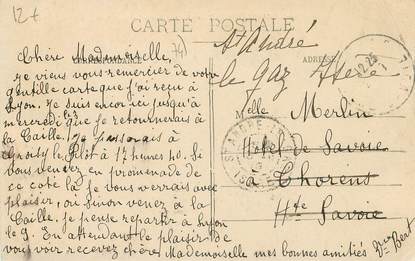 12+
CARTE POSTALE
(74)
St André
le Gaz Isère
ADRESSE
Chère Mademoiselle,
je viens vous remercier de votre
gentille carte que j'ai reçu à
Lyon. Je suis encor ici jusqu'à
mercredi que je retournerais à
la Caille. Je passerais à
Groisy le Plot à 17 heures 40. Si
vous venez en promenade de
ce coté la je vous verrais avec
plaisir, ou sinon venez à la
Caille. je pense repartir à Lyon
le 9. En attendant le plaisir de
vous voir recevez chère Mademoiselle mes bonnes amitiés
Bert
Melle Merlin
Hôtel de Savoie
à Thorens
Hte Savoie
ST ANDRE